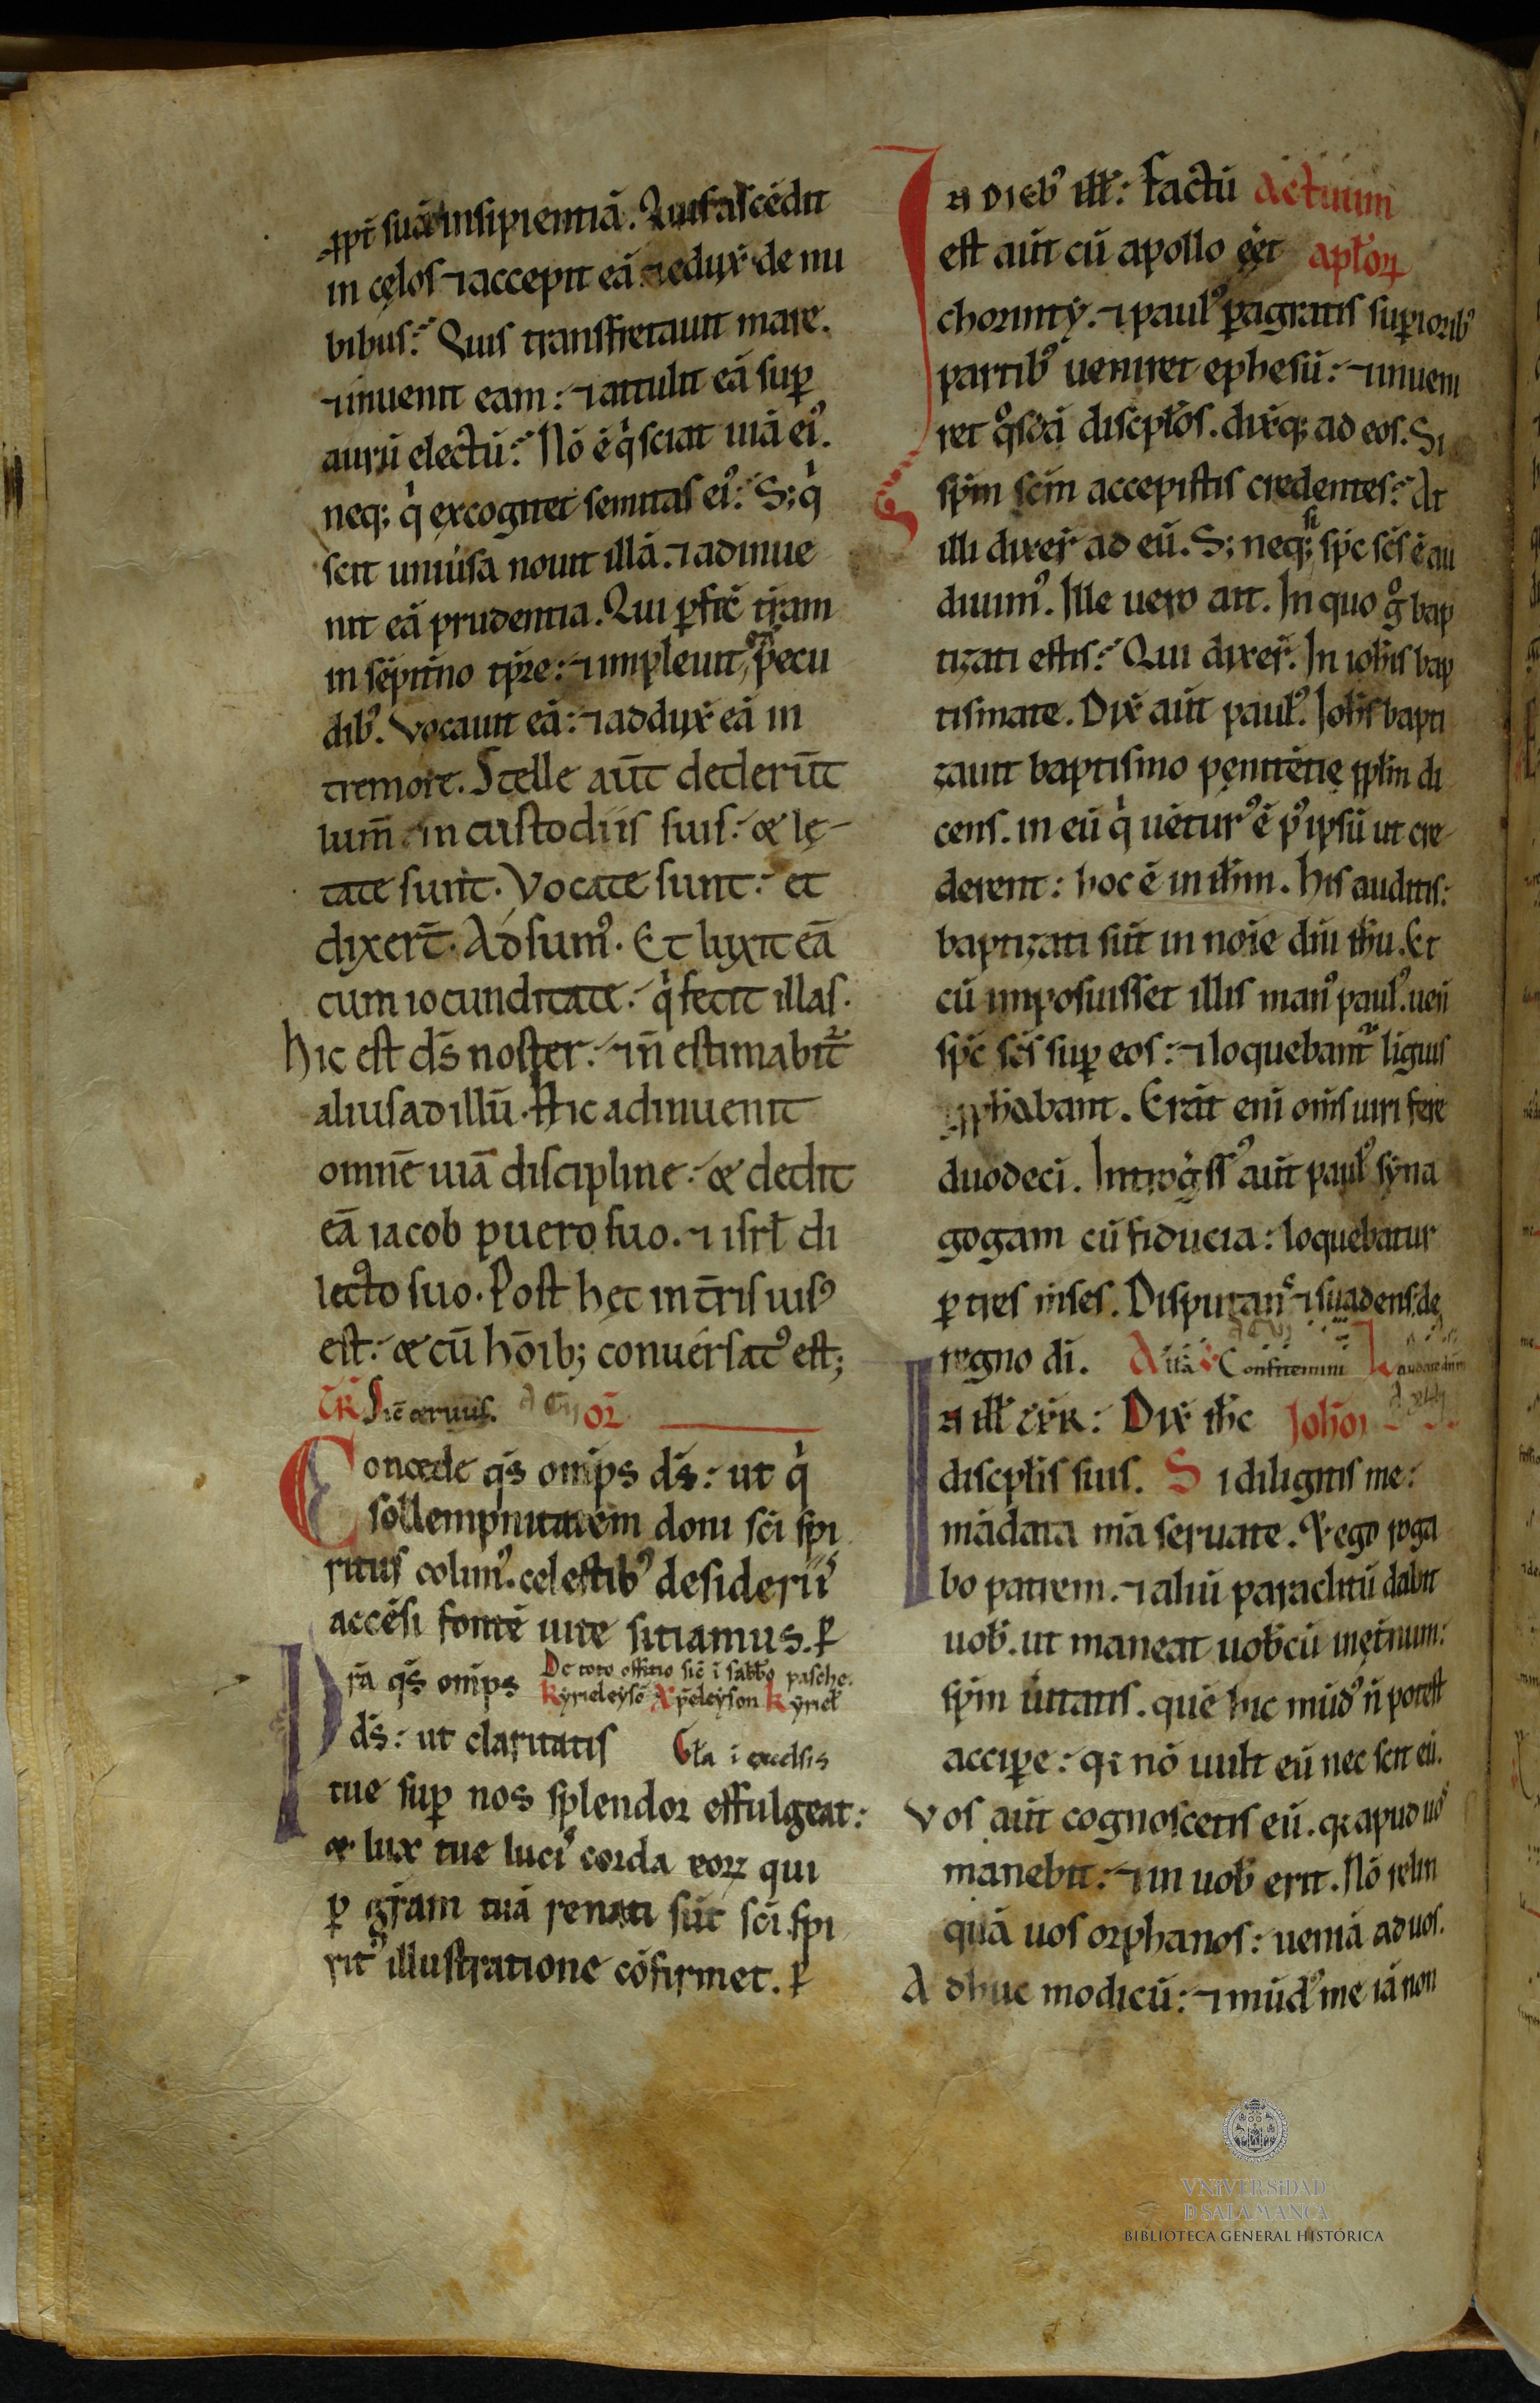 ꝓpt̄ suā insipientiā. Quis ascēdit
in cęlos ⁊ accepit eā ⁊ edux̄ de nu
bibus? Quis transfretauit mare.
⁊ inuenit eam: ⁊ attulit eā suꝑ
aurū electū? Nō ē q̇ sciat uiā eiꝰ.
neq; q̇ excogitet semitas eiꝰ: S; q̇
scit uniūsa nouit illā. ⁊ adinue
nit eā prudentia. Qui ꝑfic̄ tr̄am
in sēpitīno tp̄re: ⁊ impleuit p̄ecu
dibꝰ. Vocauit eā: ⁊ addux̄ eā in
tremore. Stelle aūt dederūt
lum̄ in custodiis suis: & lę
tate sunt. Vocate sunt: et
dixer̄t. Adsumꝰ. Et luxit eā
cum iocunditate: q̇ fecit illas.
hic est d̄s noster: ⁊ n̄ estimabit᷑
alius ad illū. Hic adinuenit
omnē uiā discipline: & dedit
eā iacob puero suo. ⁊ isrl̄ di
lecto suo. Post hęc in t̄ris uisꝰ
est: & cū hōib; conuersatꝰ est;
TR̄ Sic̄ ceruus. OR̄
Concede qs̄ omīps d̄s: ut q̇
sollempnitatem doni sc̄i spi
ritus colimꝰ. celestibꝰ desideriis
accēsi fontē uite sitiamus. ꝑ
Pr̄a qs̄ omīps De toto offitio sic̄ ī sabb̄o pasche.
Kyrieleysō Xp̄eleyson Kyriel̄
d̄s: ut claritatis Gl̄a ī excelsis
tue suꝑ nos splendor effulgeat:
& lux tue lucis corda eoꝝ qui
ꝑ gr̄am tuā renati sūt sc̄i spi
ritꝰ illustratione cōfirmet. ꝑ
In diebꝰ ill̄: Factū Actuum
est aūt cū apollo eēt apl̄oꝝ
chorinty. ⁊ paulꝰ ꝑagratis supioribꝰ
partibꝰ ueniret ephesū: ⁊ inueni
ret qͦsdā discipl̄os. dix̄q; ad eos. Si
sp̄m sc̄m accepistis credentes? At
illi dixer̄ ad eū. S; neq; si sp̄c sc̄s ē au
diuimꝰ. Ille uero ait. In quo gͦ bap
tizati estis? Qui dixer̄. In ioh̄is bap
tismate. Dix̄ aūt paulꝰ. Ioh̄s bapti
zauit baptismo pęnitētię ppl̄m di
cens. in eū q̇ uēturꝰ ē p̄ꝰ ipsū ut cre
derent: hoc ē in ih̄m. His auditis:
baptizati sūt in noīe dn̄i ih̄u. Et
cū imposuisset illis manꝰ paulꝰ. uen̄
sp̄c sc̄s suꝑ eos: ⁊ loquebant᷑ līguis
⁊ ꝓph̄abant. Erāt enī om̄s uiri fere
duodecī. Introgͥssꝰ aūt paulꝰ syna
gogam cū fiducia: loquebatur
ꝑ tres m̄ses. Disputans ⁊ suadens: de
regno dī. All̄a ℣ Confitemini Laudate dn̄m
In ill̄ t̄xR̄: Dix̄ ih̄c Ioh̄oī
discipl̄is suis. Si diligitis me:
mādata m̄a seruate. & ego roga
bo patrem. ⁊ aliū paraclitū dabit
uob̄. ut maneat uob̄cū in ęt̄num:
sp̄m ūitatis. quē hic mūdꝰ n̄ potest
acciꝑe: q; nō uidit eū nec scit eū.
Vos aūt cognoscetis eū. q; apud uoˢ
manebit: ⁊ in uob̄ erit. Nō relin
quā uos orphanos: ueniā ad uos.
Adhuc modicū: ⁊ mūdꝰ me iā non
VNiVERSiDAD
D SALAMANCA
BIBLIOTECA GENERAL HISTÓRICA